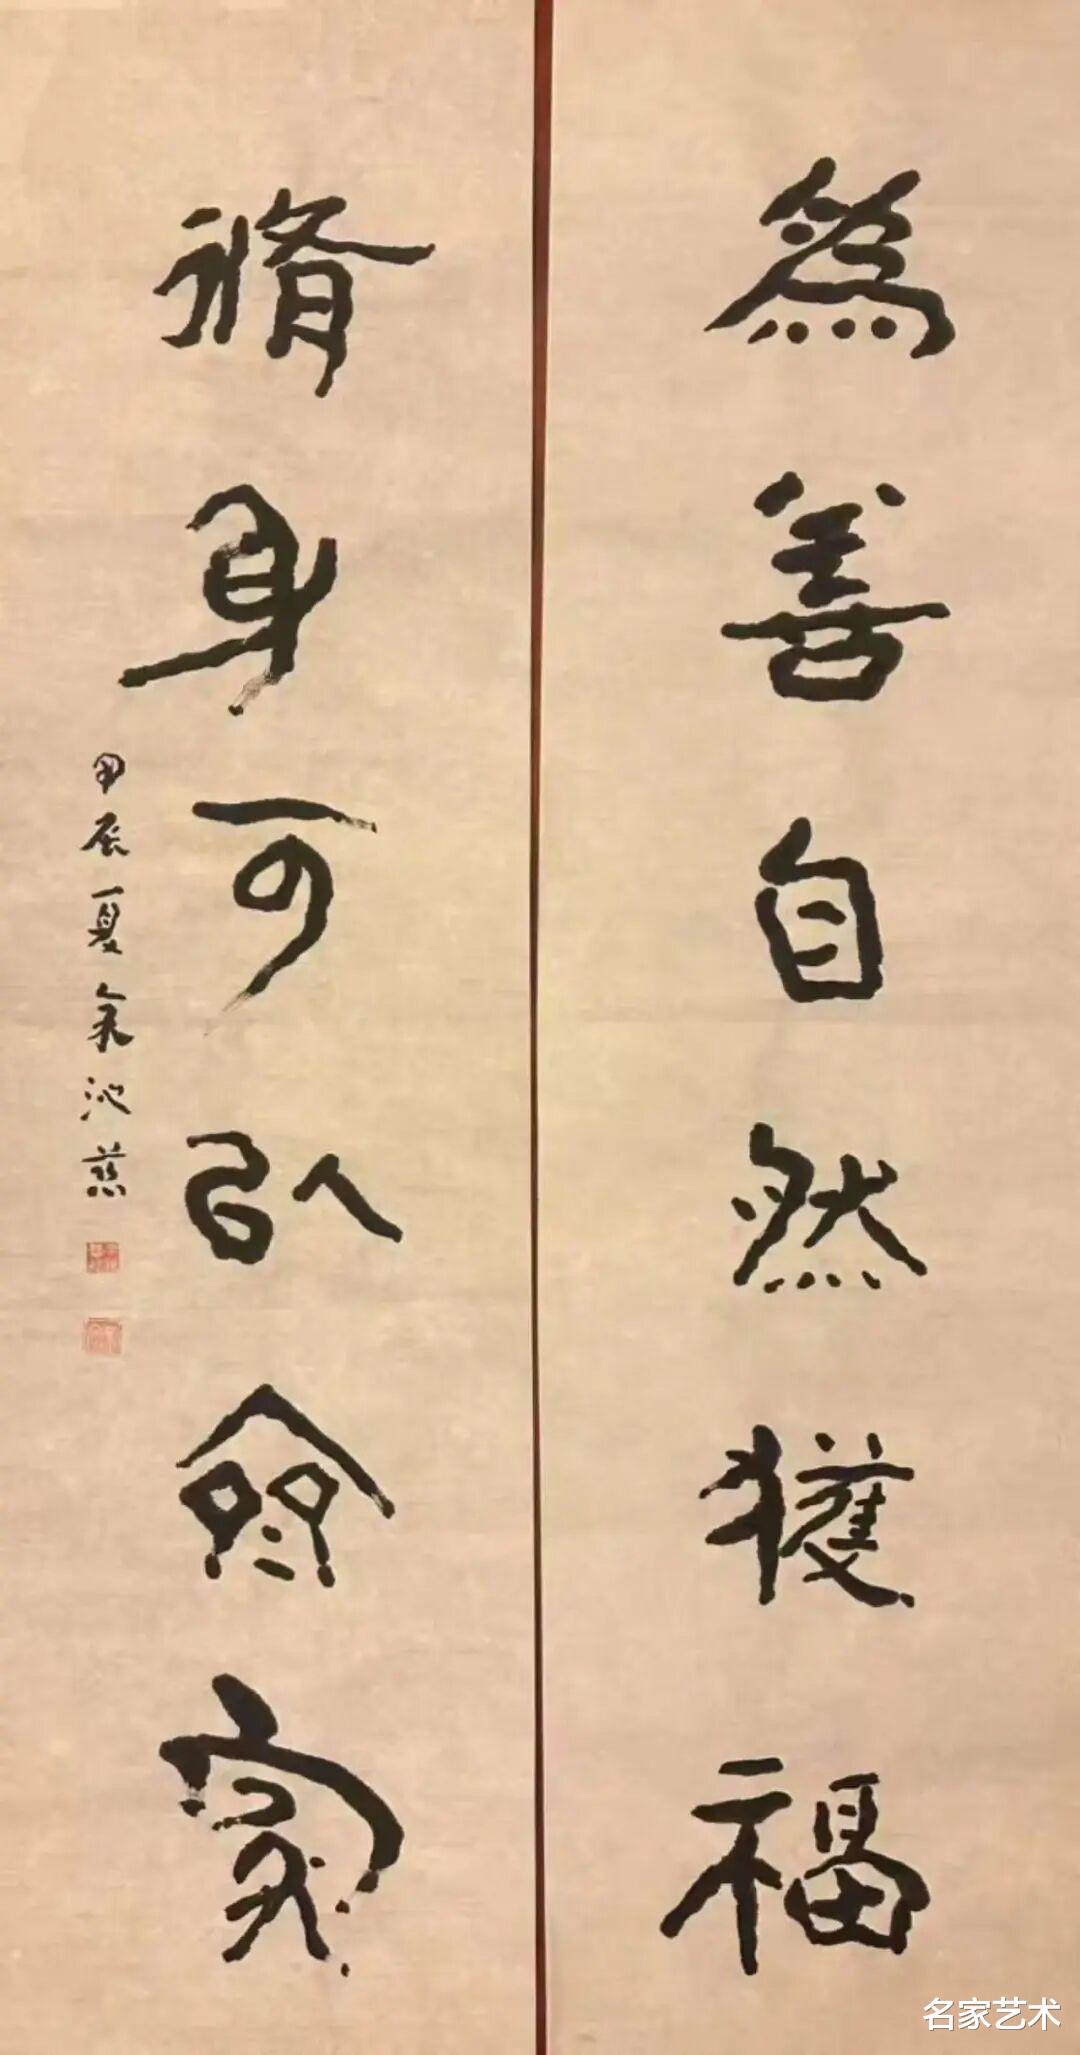 為善自然獲福
脩身可以齊家
甲辰夏
名家艺术